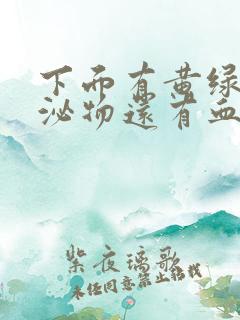 下而有黄绿
泌物还有血
紫夜璃歌
未经同意禁止转载